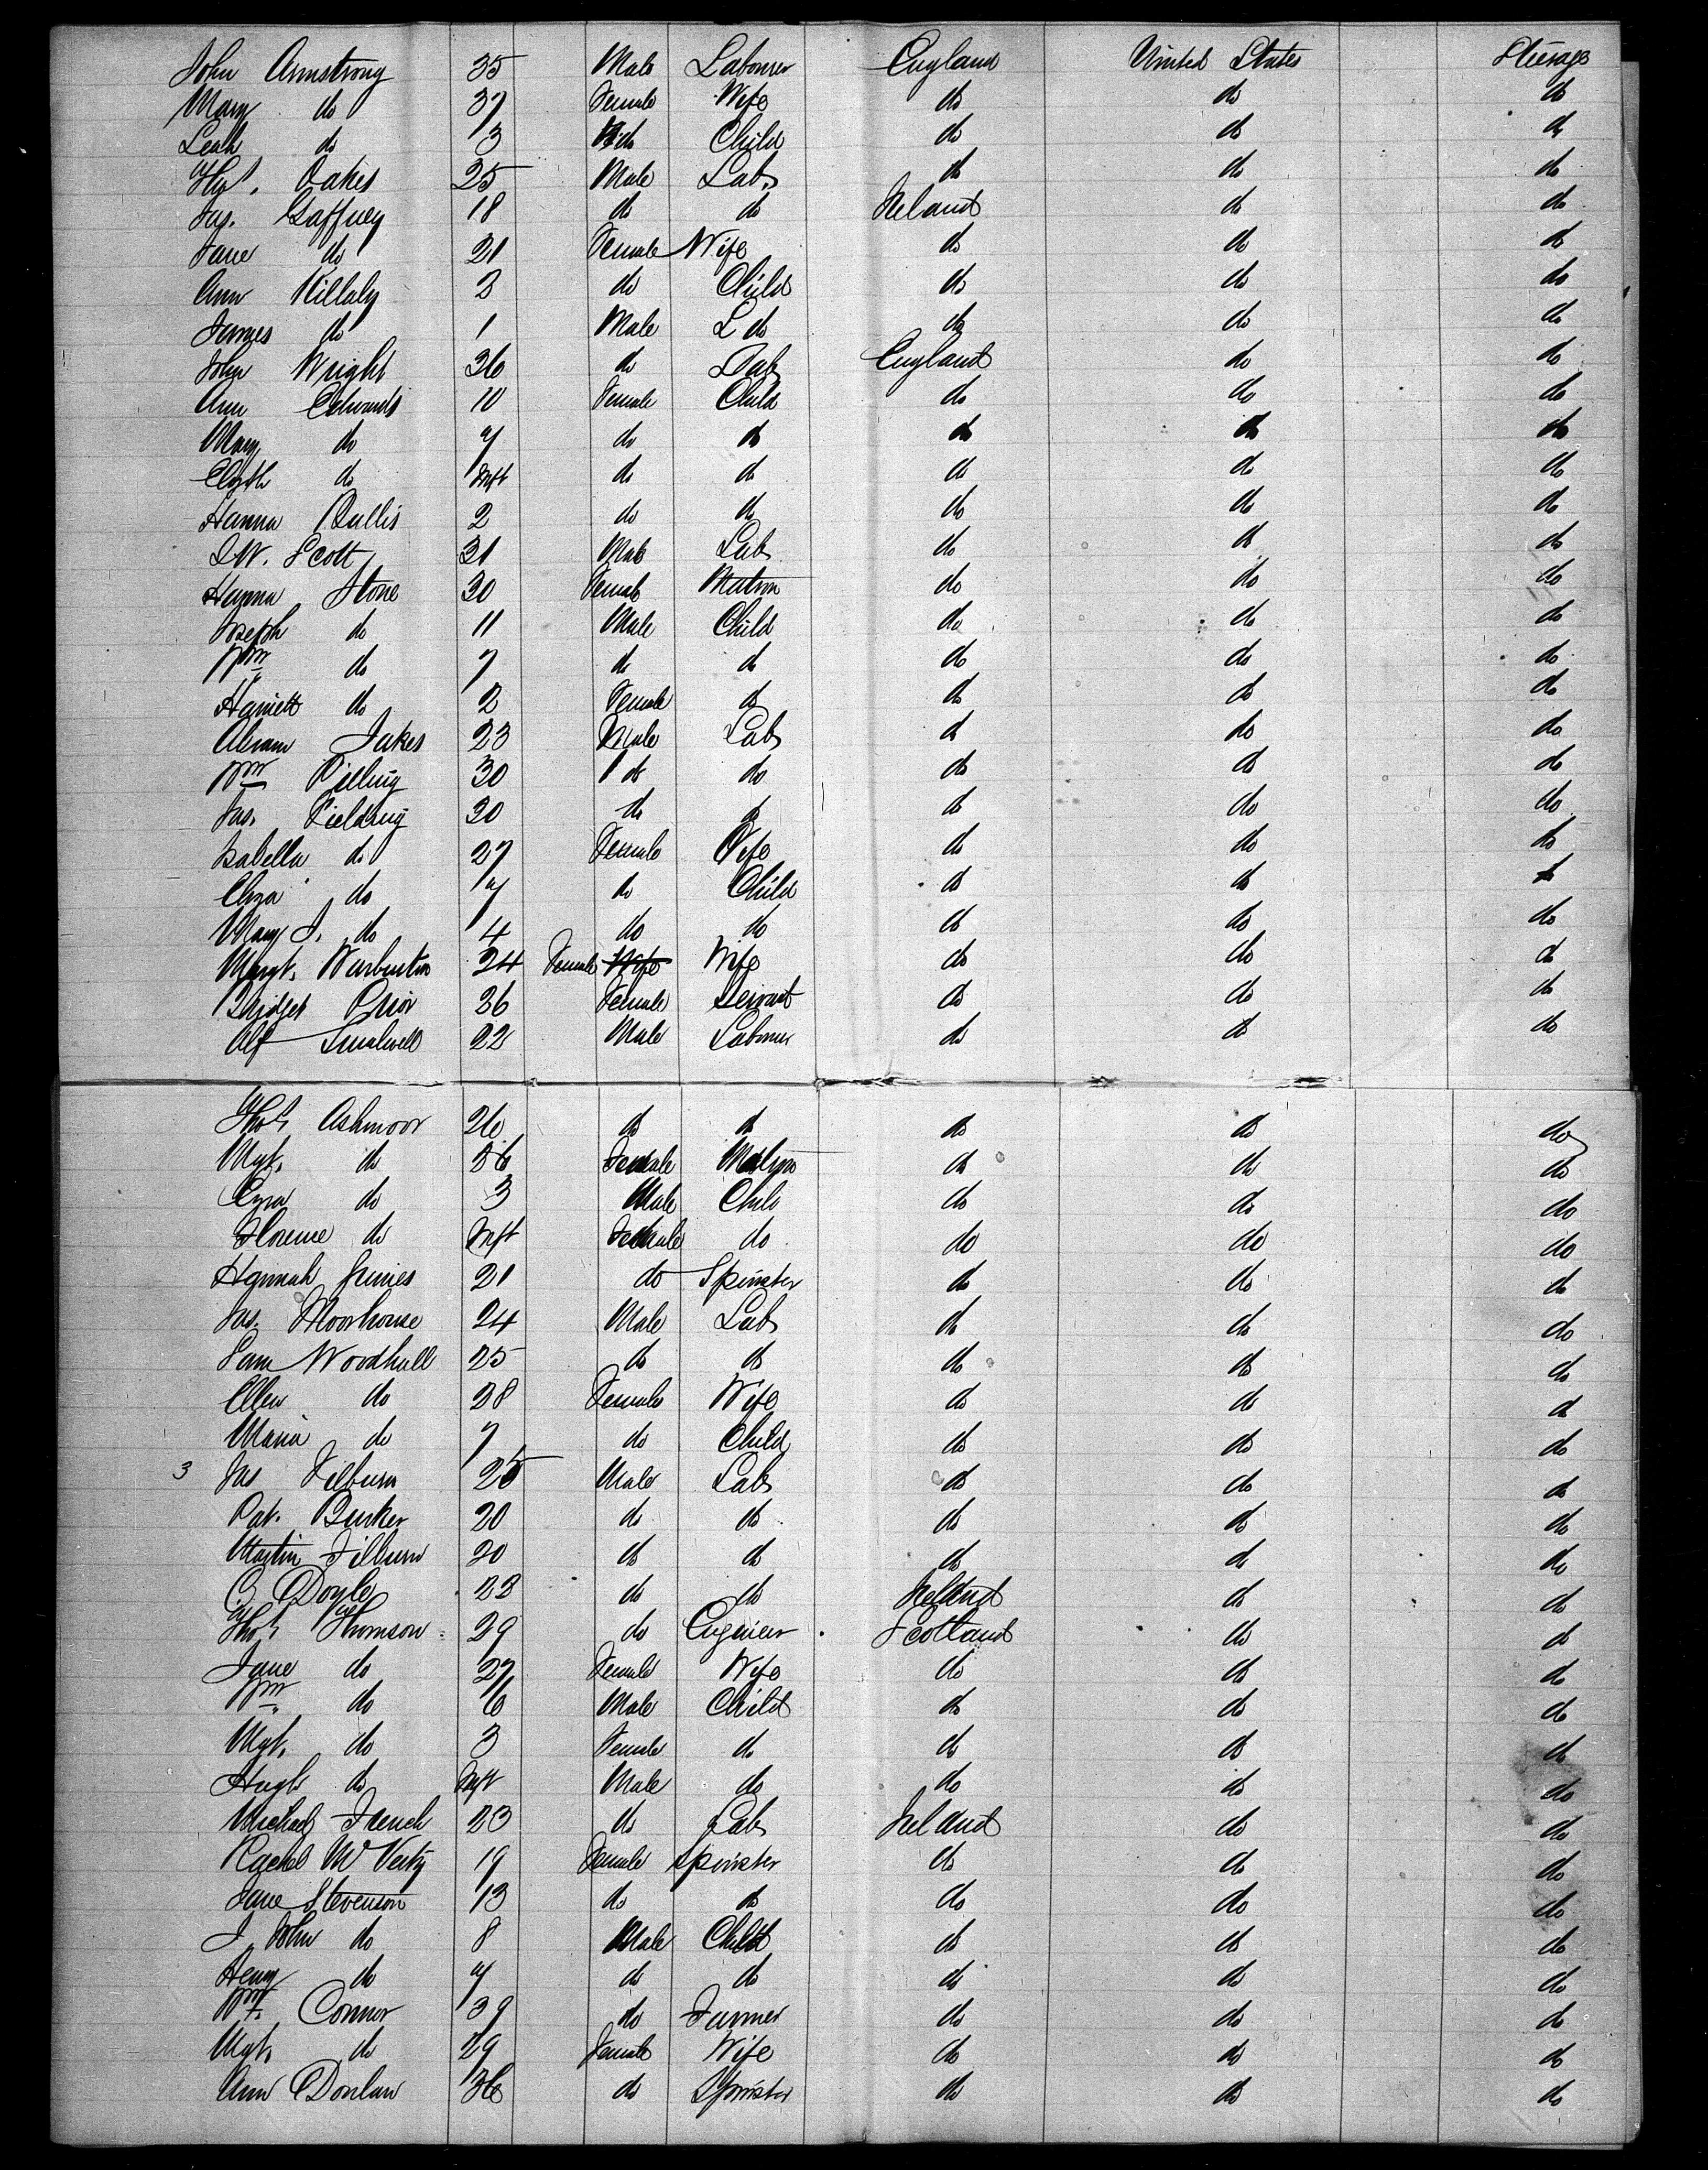 John Armstrong 35 Male Labourer England United States Steerage
Mary do 37 Female Wife do do do
Leah do 3 do Child do do do
Oakes 25 Male Lab. do do do
Jas. Gaffney 18 do do Ireland do do
Jane do 21 Female Wife do do do
Ann Killaly 2 do Child do do do
James do 1 Male do do do do
John Wright 36 do Lab England do do
Ann Edwards 10 Female Child do do do
Mary do 7 do do do do do
Elizth do Inft do do do do do
Hanna Bullis 2 do do do do do
W. Scott 31 Male Lab do do do
Hanna Stone 30 Female Matron do do do
Joseph do 11 Male Child do do do
Wm do 7 do do do do do
Harriett do 2 Female do do do do
Abram Jakes 23 Male Lab do do do
Wm Pilling 30 do do do do do
Jas. Fielding 30 do do do do do
Isabella do 27 Female Wife do do do
Eliza do 7 do Child do do do
Mary J. do 4 do do do do do
Margt. Warburton 24 Female Wife do do do
Bridget Prior 36 Female Servant do do do
Alf Smalwell 22 Male Labourer do do do
Thos Ashmoor 26 do do do do do
Mgt. do 26 Female Matron do do do
Ezra do 3 Male Child do do do
Florence do Inft Female do do do do
Hannah 21 do Spinster do do do
Jas. Moorhouse 24 Male Lab do do do
Sam Woodhull 25 do do do do do
Ellen do 28 Female Wife do do do
Maria do 7 do Child do do do
3 Jas Filburn 25 Male Lab do do do
Pat. Burker 20 do do do do do
Martin Filburn 20 do do do do do
C Doyle 23 do do Ireland do do
Thos Thomson 29 do Engineer Scotland do do
Jane do 27 Female Wife do do do
Wm do 6 Male Child do do do
Mgt. do 3 Female do do do do
Hugh do Inft Male do do do do
Michael French 23 do Lab Ireland do do
Rachel McVeity 19 Female Spinster do do do
Jane Stevenson 13 do do do do do
J John do 8 Male Child do do do
Henry do 7 do do do do do
Wm Connor 39 do Farmer do do do
Mgt. do 29 Female Wife do do do
Ann Donlan 36 do Spinster do do do